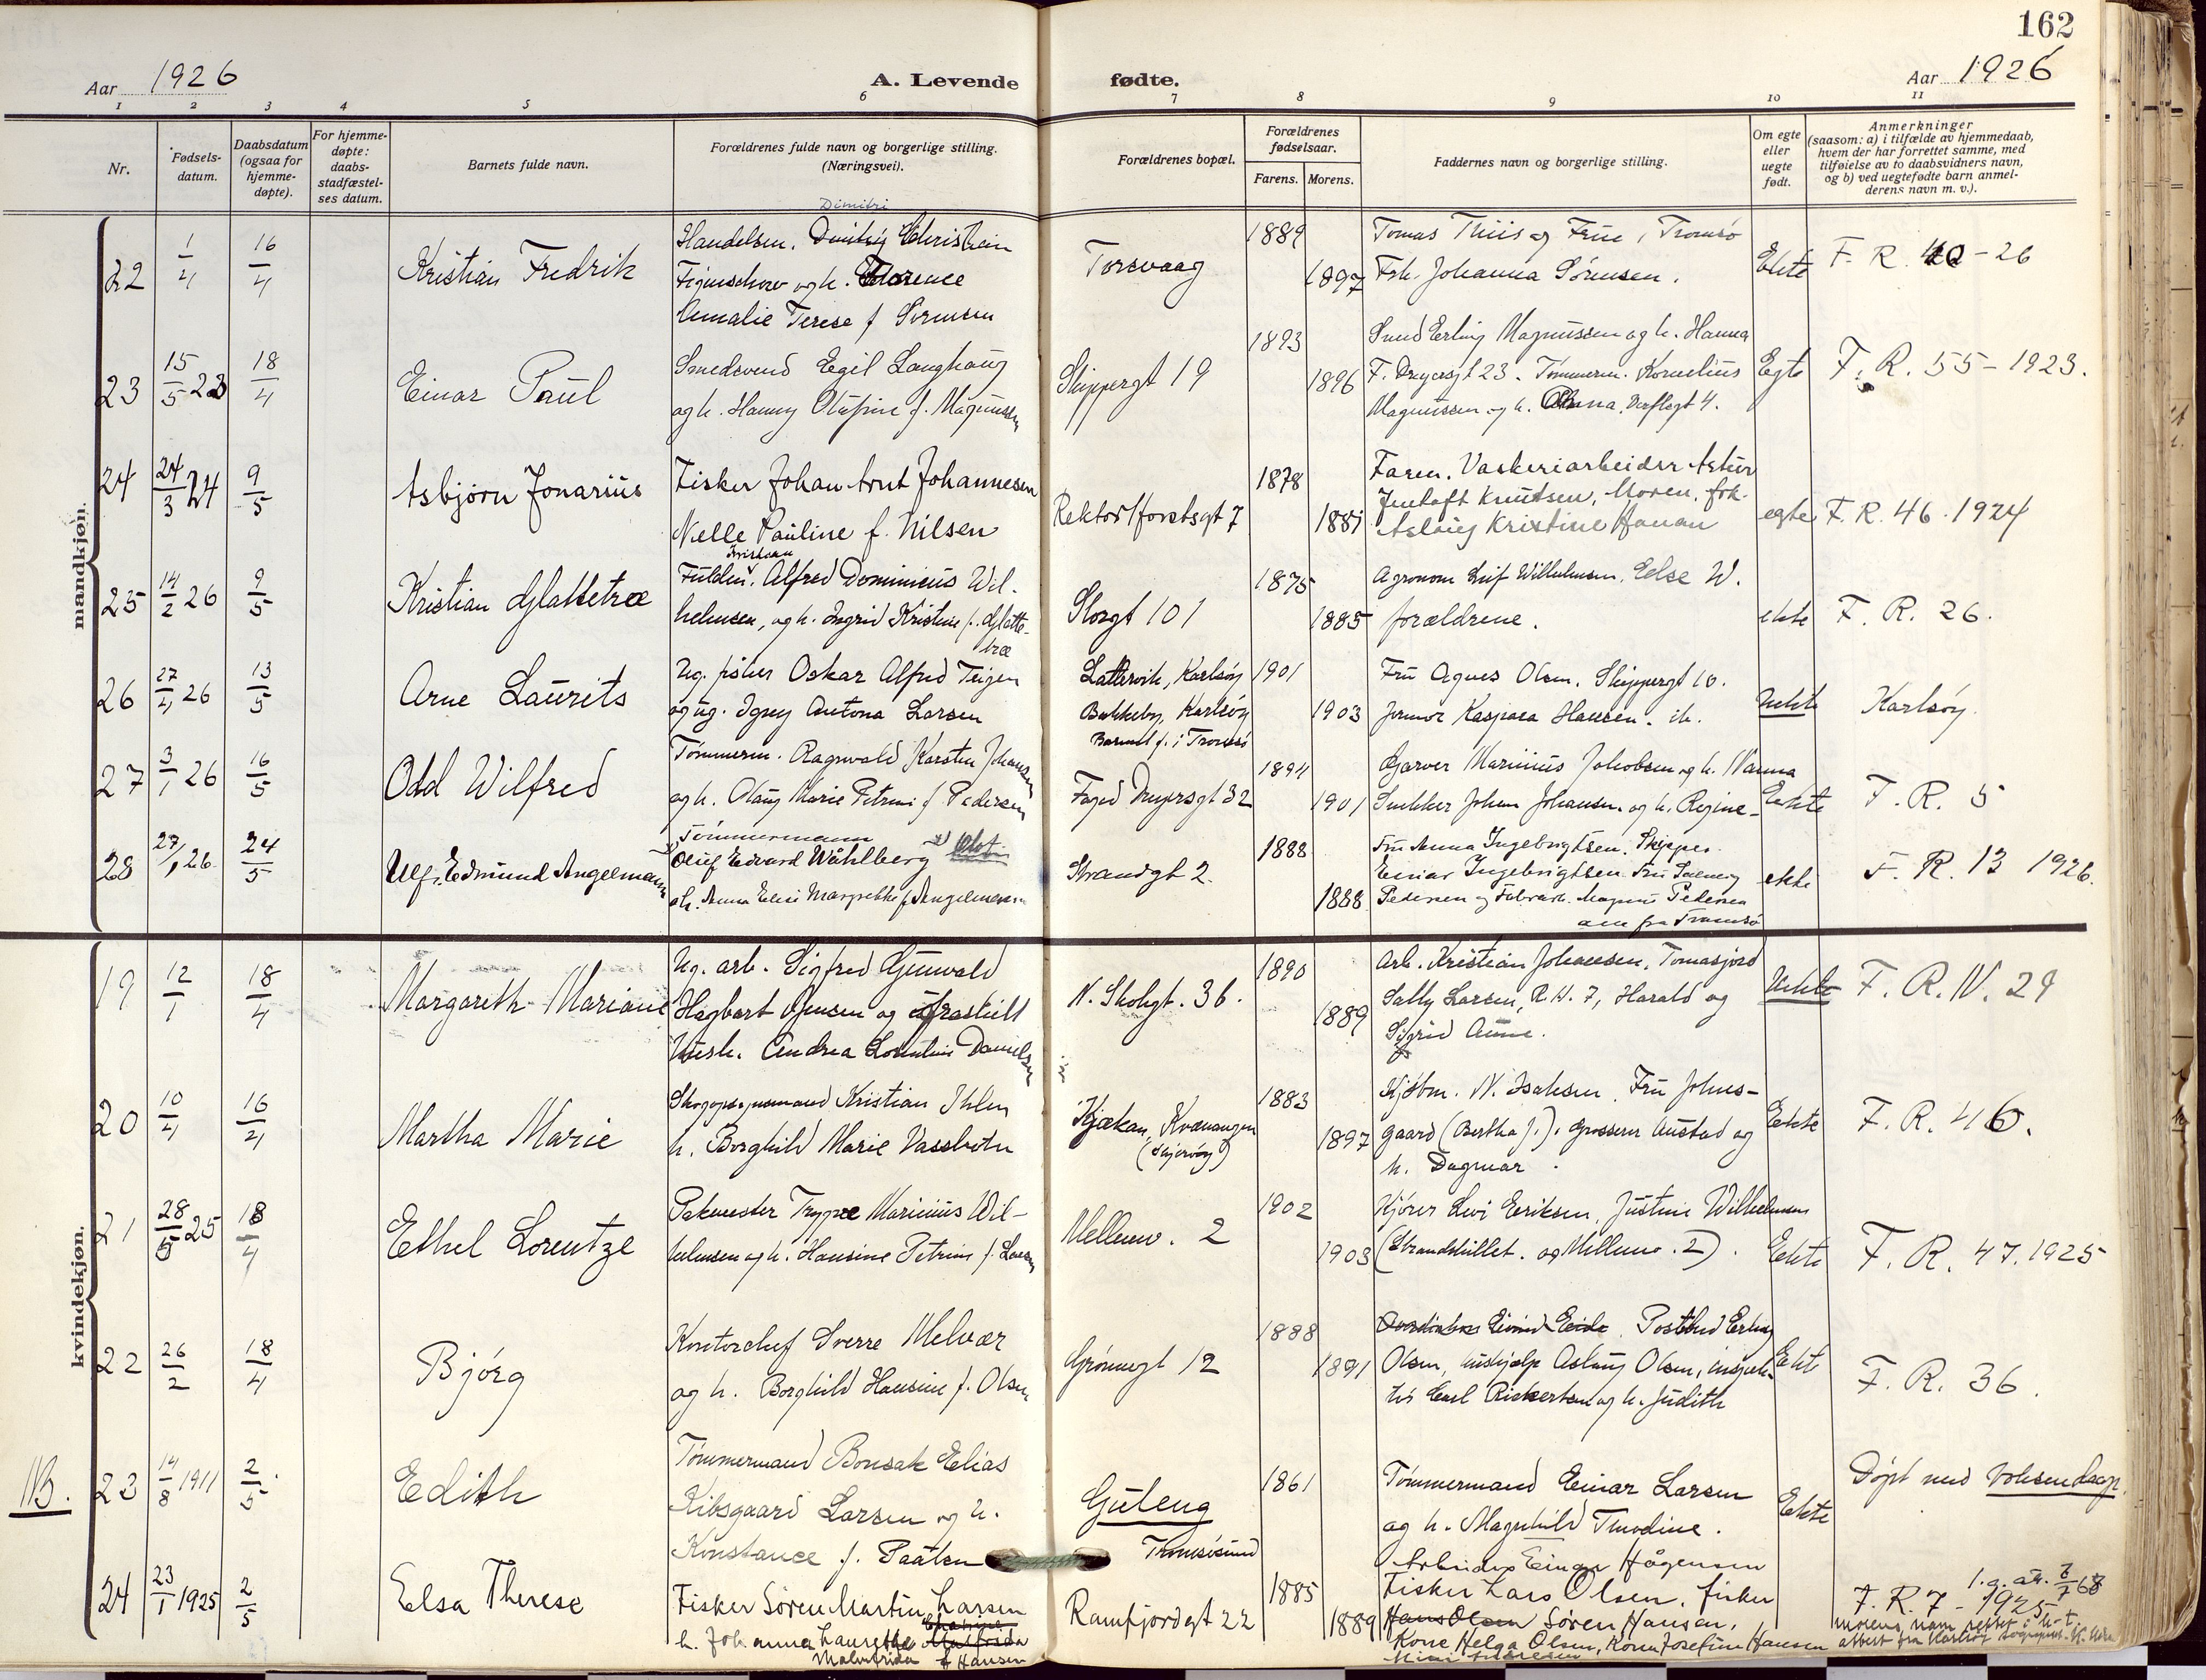 162
Aar 1926
A. Levende fødte.
Aar 1926
1 2 3 4 5 6 7 8 9 10 11
Nr.
Fødsels-
datum.
Daabsdatum
(ogsaa for
hjemme-
døpte).
For hjemme-
døpte:
daabs-
stadfæstel-
ses datum.
Barnets fulde navn.
Forældrenes fulde navn og borgerlige stilling.
(Næringsvei).
Forældrenes bopæl.
Forældrenes
fødselsaar.
Farens. Morens.
Faddernes navn og borgerlige stilling.
Om egte
eller
uegte
født.
Anmerkninger
(saasom: a) i tilfælde av hjemmedaab,
hvem der har forrettet samme, med
tilføielse av to daabsvidners navn,
og b) ved uegtefødte barn anmel-
derens navn m. v.).
mandkjøn.
22
1/4
16/4
Kristian Fredrik
Dimitri
Handelsm. Christian
og h. Florence
Amalie Terese f Sørensen
Torsvaag
1889
1897
Tomas Thiis og Frue, Tromsø
Frk. Johanna Sørensen.
Ekte
F. R. 40-26
23
15/5 23
18/4
Einar Paul
Smedsvend Egil Langhaug
og h. Hanny Olufine f. Magnussen
Skippergt 19
1893
1896
Smed Erling Magnussen og h. Hanna
F. Dreyersgt 23. Tømmerm. Kornelius
Magnussen og h. Anna, 4.
Egte
F. R. 55-1923.
24
24/3 24
9/5
Asbjørn Jonarius
Fisker Johan Arnt Johannesen
Nelle Pauline f. Nilsen
Rektor Horstsgt 7
1878
1881
Faren. Vaskeriarbeider Artur
Knutsen, Moren, frk.
Aslaug Kristine Hanan
egte
F. R. 46. 1924
25
14/2 26
9/5
Kristian Glattetræ
Kristian
Fuldm. Alfred Dominicus Wil-
helmsen, og h. Ingrid Kristine f. Glatte-
træ
Storgt 101
1875
1885
Agronom Leif Wilhelmsen, Else W.
forældrene.
ekte
F. R. 26.
26
27/4 26
13/5
Arne Laurits
Ug. fisker Oskar Alfred Teigen
og ug. Antona Larsen
Karlsøy
Karlsøy
Barnet f. i Tromsø
1901
1903
Fru Agnes Olsen. Skippergt 10.
Jormor Kaspara Hansen. ib.
Uekte
Karlsøy
27
3/1 26
16/5
Odd Wilfred
Tømmerm. Ragnvald Karsten Johansen
og h. Olaug Marie Petrine f Pedersen
Foged Dreyersgt 32
1894
1901
Garver Marinius Jakobsen og h. Nanna
Snekker Johan Johansen og h. Regine
Ekte
F. R. 5
28
27/1 26
24/5
Ulf, Edmund Angelmann
Tømmermann
Oluf Edvard Wåhlberg
og h. Anna Elise Margrethe f Angelmann
Strandgt 2.
1888
1888
Fru Anna Ingebrigtsen. Skipper
Einar Ingebrigtsen. Fru Solveig
Pedersen og Fabrikk. Magnus Pedersen
alle fra Tromsø
ekte
F. R. 13 1926.
kvindekjøn.
19
12/1
18/4
Margareth Mariane
Ug. arb. Sigfred Gunvald
Hagbart Jensen og fraskilt
Andrea Lorentine Danielsen
N. Skolegt. 36.
1890
1889
Arb. Kristian Johansen, Tomasjord
Sally Larsen, R.H. 7, Harald og
Sigrid Aune.
Uekte
F. R. N. 24
20
10/4
16/4
Martha Marie
Kristian Ihlen
h. Borghild Marie Vassbotn
Kjækan, Kvænangen
(Skjervøy)
1883
1897
Kjøbm. N. Isaksen, Fru Johns-
gaard (Bertha J.). Grosserer Austad og
h. Dagmar.
Ekte
F. R. 46.
21
28/5 25
18/4
Ethel Lorentze
Pakmester Trygve Marinius Wil-
helmsen og h. Hansine Petrine f. Larsen
Mellemv. 2
1902
1903
Kjører Levi Eriksen, Justine Wilhelmsen
(Strandskillet. og Mellemv. 2).
Ekte
F. R. 47. 1925
22
26/2
18/4
Bjørg
Kontorchef Sverre Melvær
og h. Borghild Hansine f. Olsen
Grønnegt 12
1888
1891
Eivind Eide. Postbud Erling
Olsen, hushjelp Aslaug Olsen, inspek-
tør Carl Rickertsen og h. Judith
Ekte
F. R. 36.
NB.
23
14/8 1911
2/5
Edith
Tømmermand Bonsak Elias
Ribsgaard Larsen og h.
Konstance f. Paaten
Guleng
Tromsøsund
1861
Tømmermand Einar Larsen
og h. Magnhild Tmodine.
Arbeider Einar Hågensen
Ekte
Døpt med voksendaap.
24
23/1 1925
2/5
Elsa Therese
Fisker Søren Martin Larsen
h. Johanna Laurethe
Malufrida f Hansen
Ramfjordgt 22
1885
1889
Fisker Lars Olsen, fisker
Hans Olsen Søren Hansen,
Kone Helga Olsen, Kone Josefine Hansen
F. R. 7-1925
morens navn rettet i h. t.
attest fra Karlsøy sogneprest.